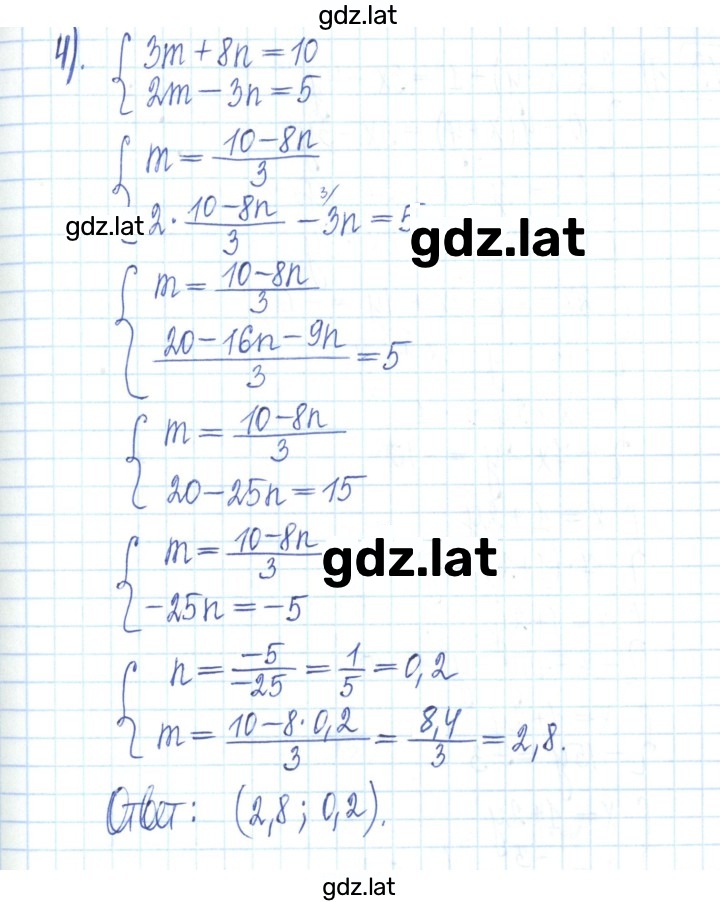 gdz.lat
4). { 3m + 8n = 10
2m − 3n = 5
{ m = (10−8n)/3
gdz.lat 2 · (10−8n)/3 − 3n ³/ = 5
gdz.lat
{ m = (10−8n)/3
(20−16n−9n)/3 = 5
{ m = (10−8n)/3
20−25n = 15
{ m = (10−8n)/3
gdz.lat
−25n = −5
{ n = −5/−25 = 1/5 = 0,2
m = (10−8·0,2)/3 = 8,4/3 = 2,8.
Ответ: (2,8 ; 0,2).
gdz.lat